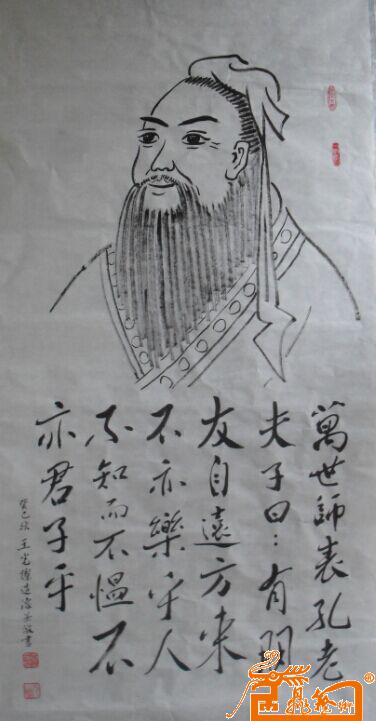 萬世師表孔老
夫子曰：有朋
友自遠方來
不亦樂乎人
不知而不愠不
亦君子乎
癸巳秋 王 敬書